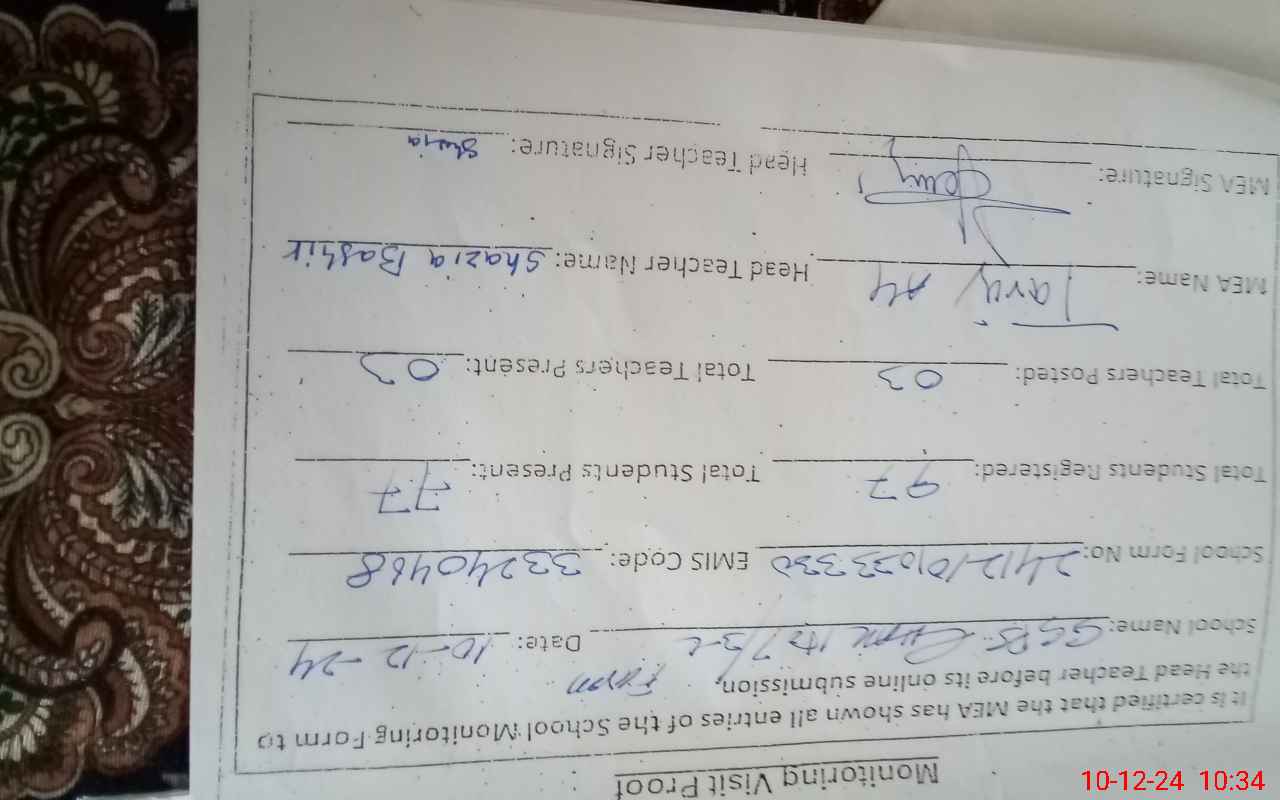 Monitoring Visit Proof
It is certified that the MEA has shown all entries of the School Monitoring Form to
the Head Teacher before its online submission.
School Name: GGPS 187/3-L Farm Date: 10-12-24
School Form No: 2412101033330 EMIS Code: 33240468
Total Students Registered: 97 Total Students Present: 77
Total Teachers Posted: 03 Total Teachers Present: 03
MEA Name: Tariq Aly Head Teacher Name: Shazia Bashir
MEA Signature: Head Teacher Signature: Shazia
10-12-24 10:34